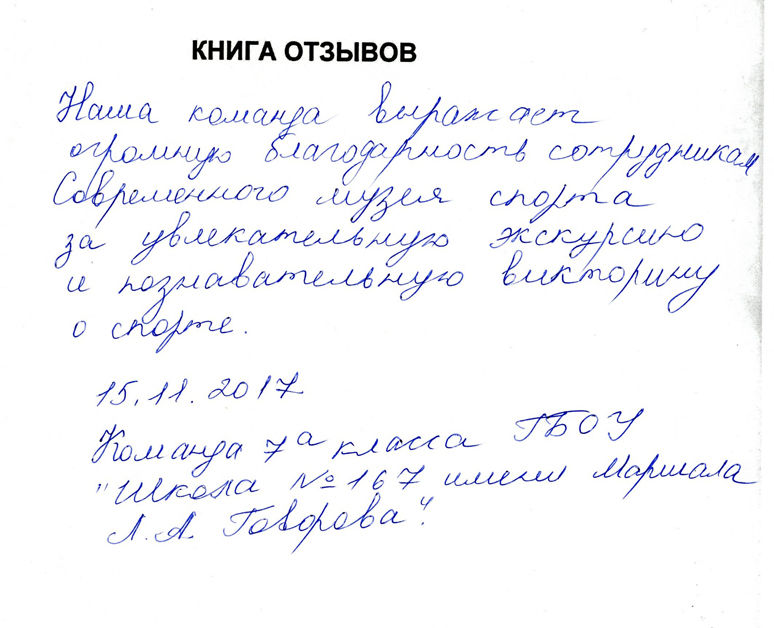 КНИГА ОТЗЫВОВ
Наша команда выражает
огромную благодарность сотрудникам
Современного музея спорта
за увлекательную экскурсию
и познавательную викторину
о спорте.
15.11.2017
Команда 7а класса ГБОУ
"Школа № 167 имени Маршала
Л.А. Говорова".